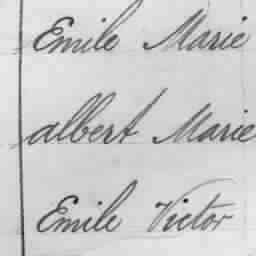 Emile Marie
albert Marie
Emile Victor